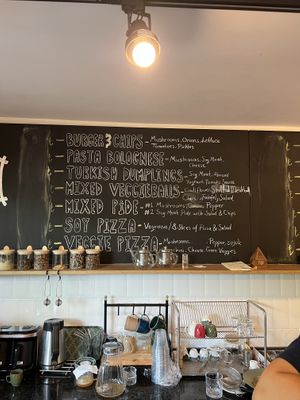 BURGER & CHIPS - Mushrooms, Onions, Lettuce
Tomatoes, Pickles
PASTA BOLOGNESE - Mushrooms, Soy Meat,
Cheese
TURKISH DUMPLINGS - Soy Meat, Almond
Yoghurt, Tomato Sauce
MIXED VEGGIEBALLS - Cauliflower,
Chips, Salad
MIXED PIDE - #1 Mushrooms, Pepper
#2 Soy Meat Pide with Salad & Chips
SOY PIZZA - Vegemeat / & Slices of Pizza & Salad
VEGGIE PIZZA - Mushrooms, Pepper,
Cheese, Corn Veggies